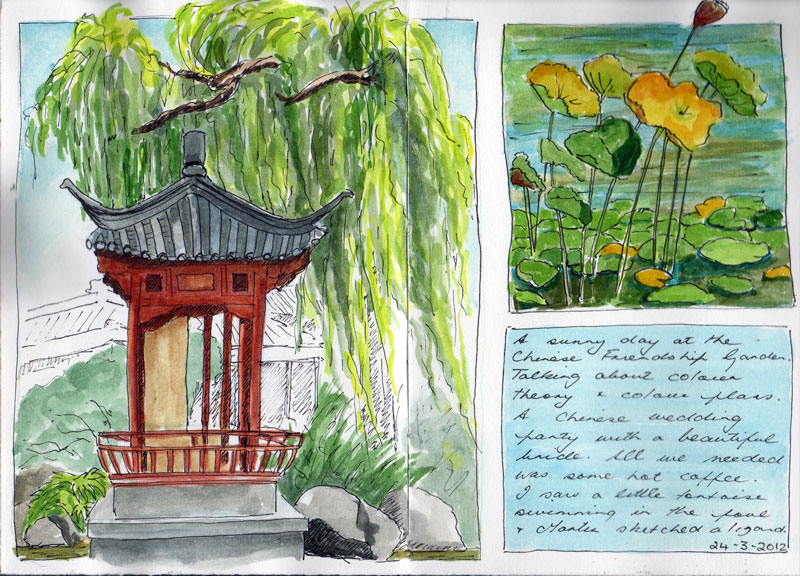 A sunny day at the
Chinese Friendship Garden.
Talking about colour
theory & colour plans.
A Chinese wedding
party with a beautiful
bride. All we needed
was some hot coffee.
I saw a little tortoise
swimming in the pool
& sketched a lizard.
24-3-2012